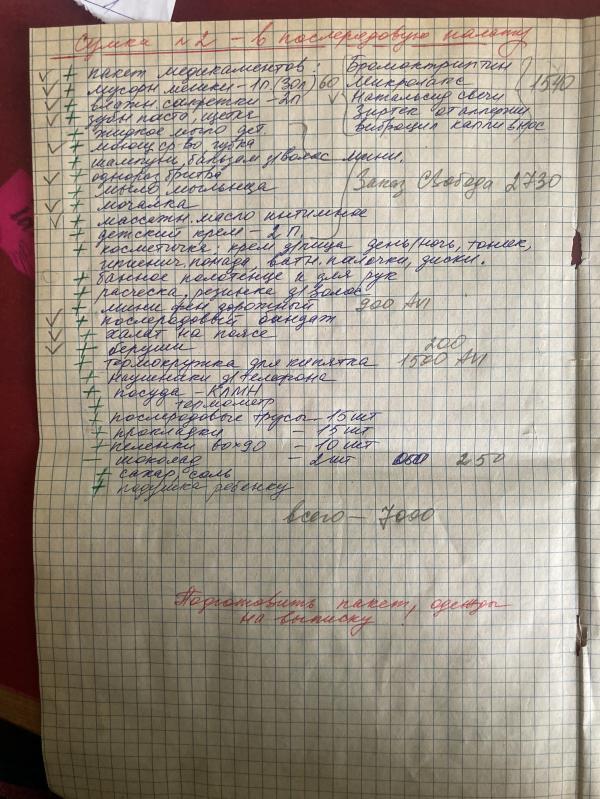 Сумка №2 - в послеродовую палату
✓ + пакет медикаментов: Бромокриптин
✓ + мусорн мешки - 1п. (30л) 60 Микролакс 1540
✓ + влажн. салфетки - 2п Натальсид свечи
✓ + зубн паста, щетка Зиртек от аллергии
+ жидкое мыло дет Виброцил капли в нос
✓ + моющ ср-во, губка
+ шампунь, бальзам д/волос мини.
✓ + однораз бритва
+ мыло, мыльница Заказ Свобода 2730
✓ + мочалка
✓ + массажн. масло интимное
+ детский крем - 2 п.
+ косметичка: крем д/лица день/ночь, тоник,
гигиенич. помада, ватн. палочки, диски.
+ банное полотенце и для рук
+ расческа, резинка д/волос
+ мини фен дорожный 900 Avi
✓ + послеродовый бандаж
✓ + халат на поясе
✓ + беруши 200
+ термокружка для кипятка 1500 Avi
+ наушники д/телефона
+ посуда - КЛМН
+ термометр
+ послеродовые трусы - 15 шт
+ прокладки - 15 шт
+ пеленки 60×90 - 10 шт
- шоколад - 2 шт 250
+ сахар, соль
+ подушка ребенку
всего - 7000
Подготовить пакет, одежды
на выписку